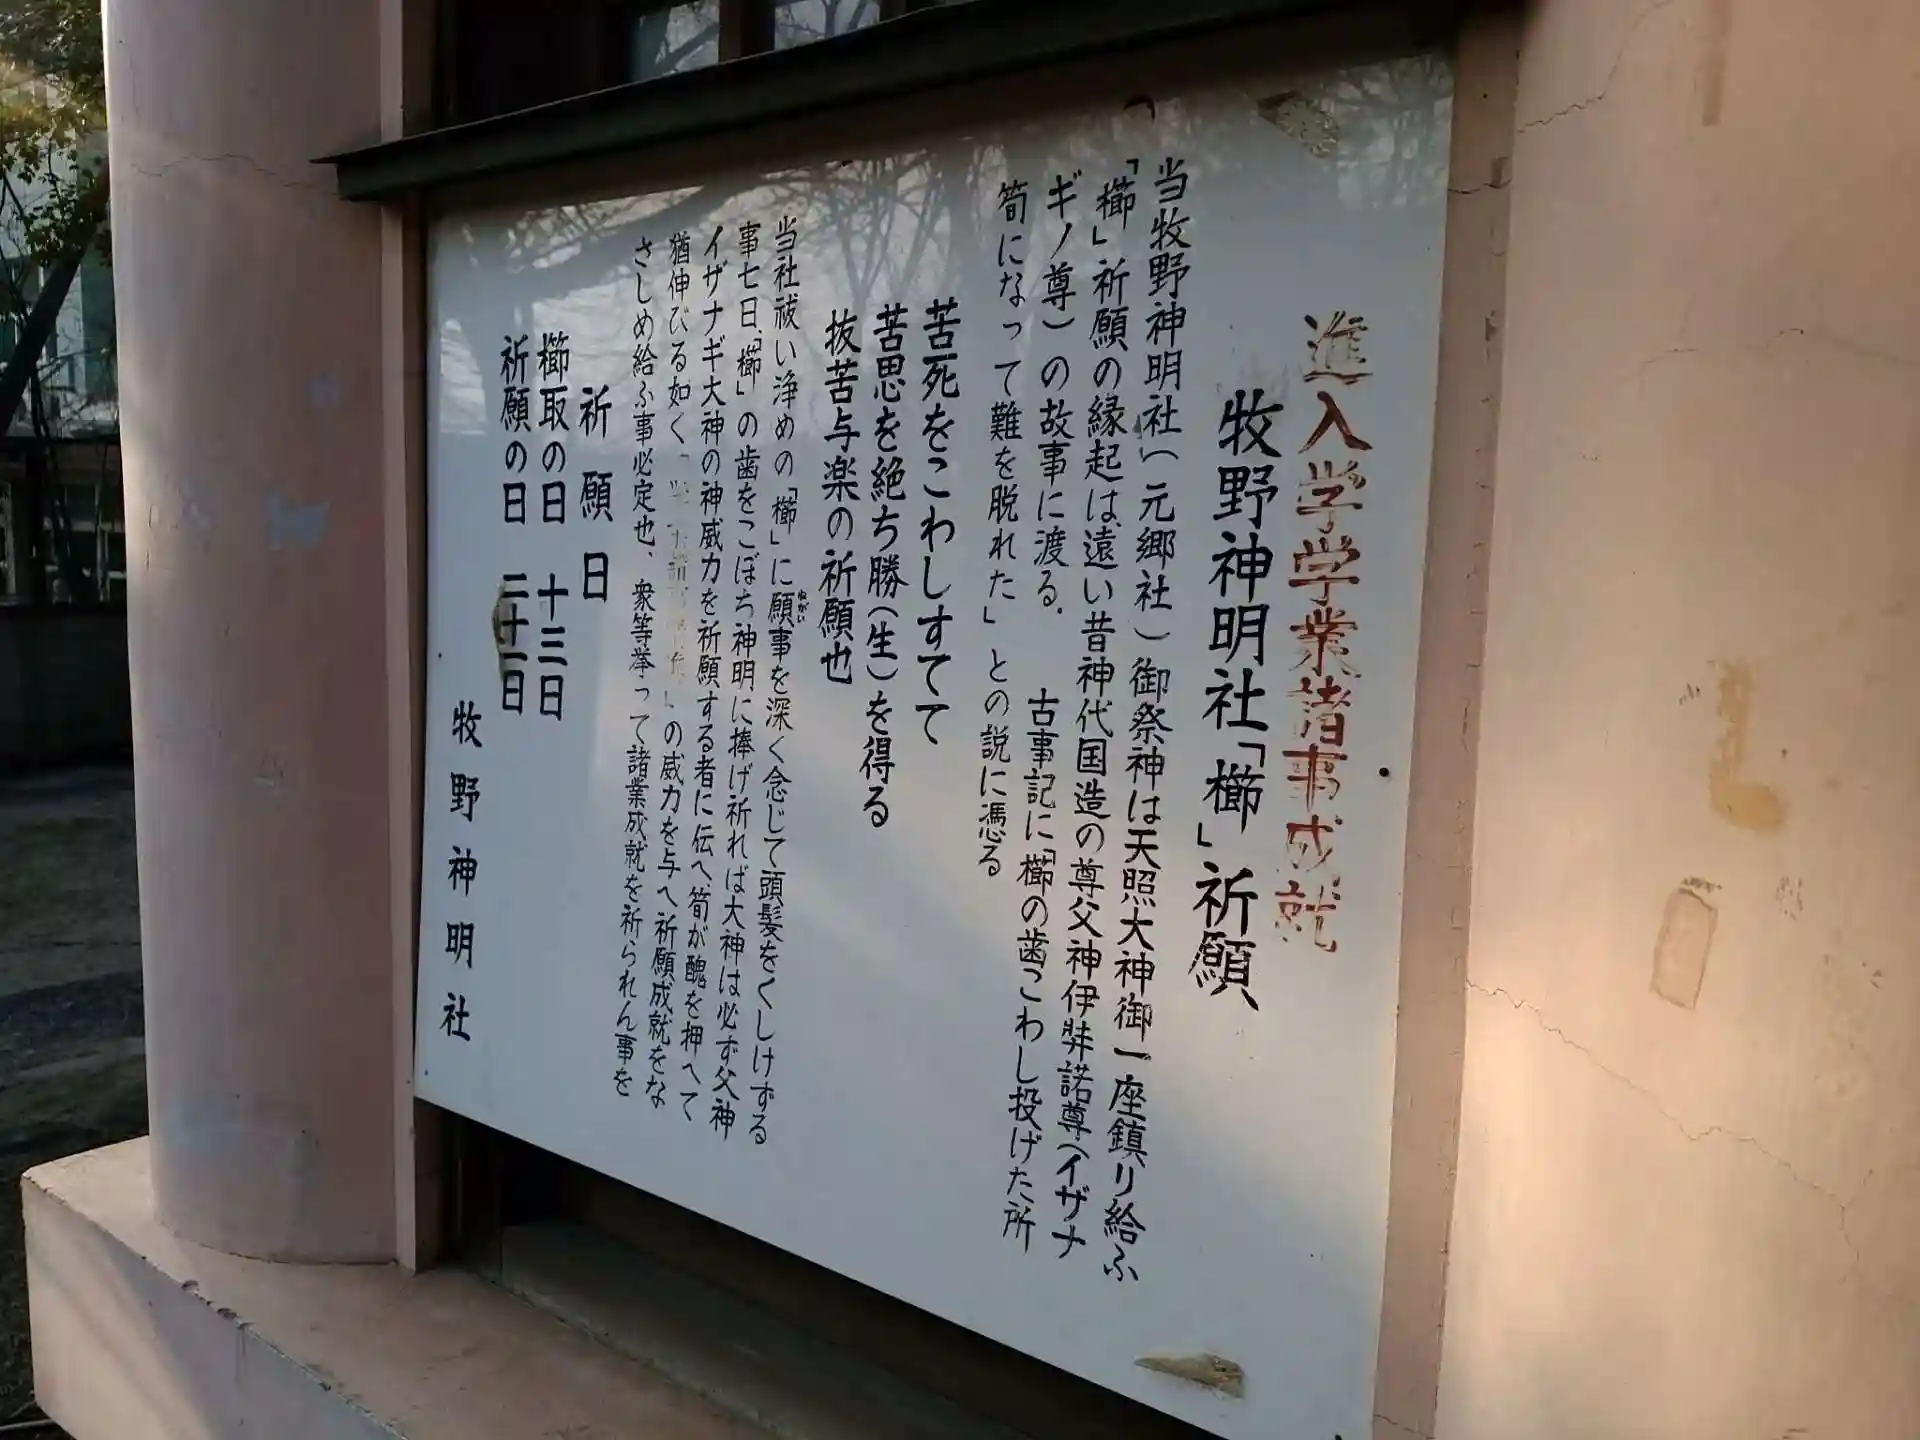 進入学学業諸事成就
牧野神明社「櫛」祈願
当牧野神明社(元郷社)御祭神は天照大神御一座鎮り給ふ
「櫛」祈願の縁起は、遠い昔神代国造の尊父神伊弉諾尊(イザナ
ギノ尊)の故事に渡る. 古事記に「櫛の歯こわし投げた所
筍になって難を脱れた」との説に憑る
苦死をこわしすてて
苦思を絶ち勝(生)を得る
抜苦与楽の祈願也
当社祓い浄めの「櫛」に願事を深く念じて頭髪をくしけずる
ねがい
事七日、「櫛」の歯をこぼち神明に捧げ祈れば大神は必ず父神
イザナギ大神の神威力を祈願する者に伝へ、筍が醜を押へて
猶伸びる如く「」の威力を与へ祈願成就をな
さしめ給ふ事必定也、衆等挙って諸業成就を祈られん事を
祈願日
櫛取の日 十三日
祈願の日 二十二日
牧野神明社